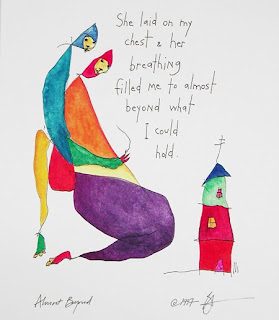 She laid on my
chest & her
breathing
filled me to almost
beyond what
I could
hold.
Almost Beyond
© 1997